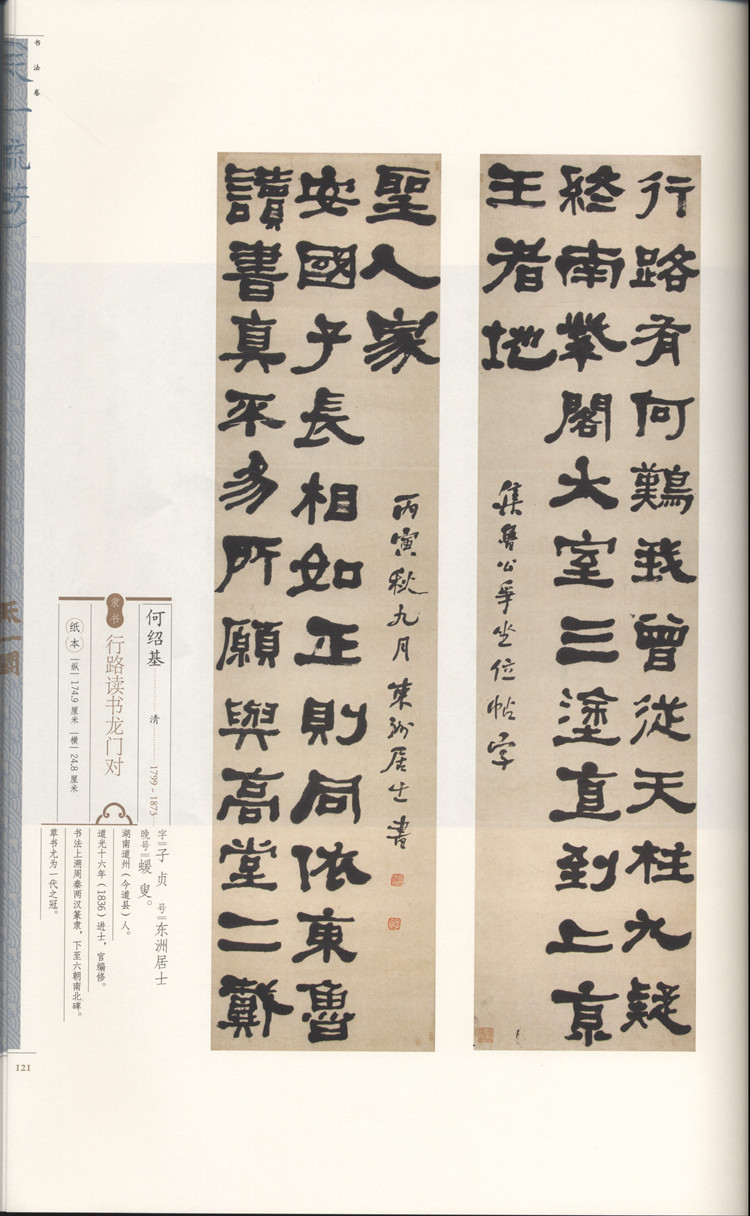 书法卷
行路有何難我曾從天柱九疑
終南紫閣太室三塗直到上京
王者地
集魯公爭坐位帖字
讀書真 易所願與高堂二鄭
安國子長相如正則同依東魯
聖人家
丙寅秋九月東洲居士書
何绍基 清 1799-1873
隶书
行路读书龙门对
纸本 |纵| 174.9 厘米 |横| 24.8 厘米
字=子贞 号=东洲居士
晚号=蝯叟。
湖南道州（今道县）人。
道光十六年（1836）进士，官编修。
书法上溯周秦两汉篆隶，下至六朝南北碑。
草书尤为一代之冠。
121